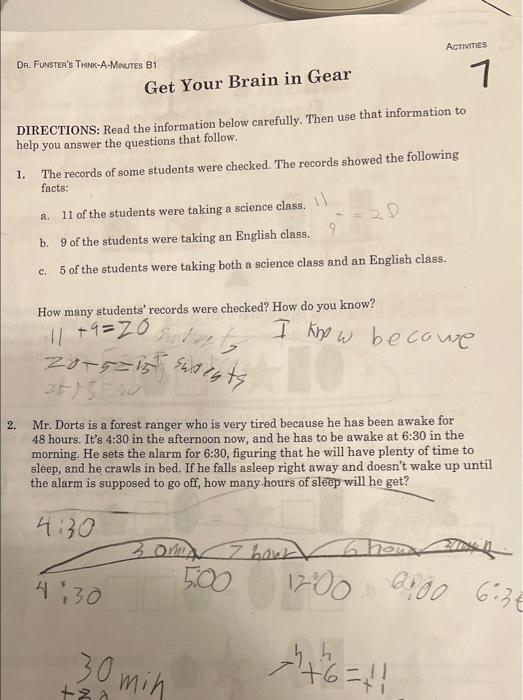 ACTIVITIES
DR. FUNSTER'S THINK-A-MINUTES B1
7
Get Your Brain in Gear
DIRECTIONS: Read the information below carefully. Then use that information to
help you answer the questions that follow.
1. The records of some students were checked. The records showed the following
facts:
a. 11 of the students were taking a science class. 11
+ = 20
b. 9 of the students were taking an English class. 9
c. 5 of the students were taking both a science class and an English class.
How many students' records were checked? How do you know?
11 + 9 = 20 I know because
2. Mr. Dorts is a forest ranger who is very tired because he has been awake for
48 hours. It's 4:30 in the afternoon now, and he has to be awake at 6:30 in the
morning. He sets the alarm for 6:30, figuring that he will have plenty of time to
sleep, and he crawls in bed. If he falls asleep right away and doesn't wake up until
the alarm is supposed to go off, how many hours of sleep will he get?
4:30
7 hour 6 hour
4:30 5:00 12:00 6:00
30 min